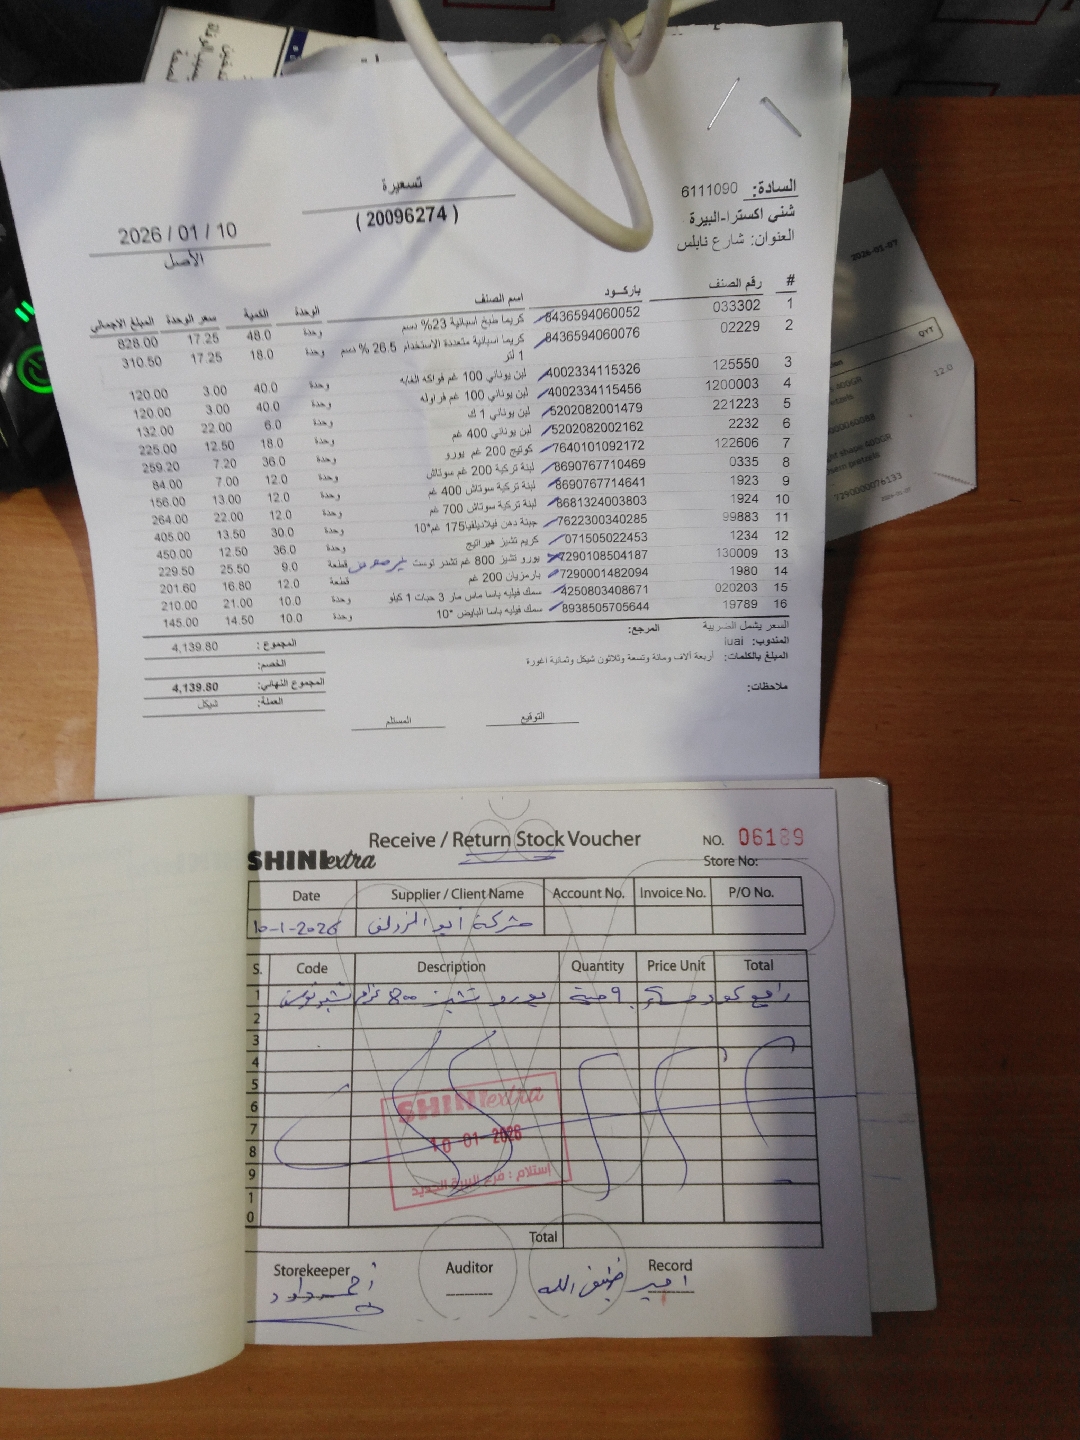 تسعيرة
( 20096274 )
2026 / 01 / 10
الأصل
السادة: 6111090
شني اكسترا-البيرة
العنوان: شارع نابلس
# رقم الصنف باركـود اسم الصنف الوحدة الكمية سعر الوحدة المبلغ الاجمالي
1 033302 8436594060052 كريما طبخ اسبانية 23% دسم وحدة 48.0 17.25 828.00
2 02229 8436594060076 كريما اسبانية متعددة الاستخدام 26.5 % دسم وحدة 18.0 17.25 310.50
1 لتر
3 125550 4002334115326 لبن يوناني 100 غم فواكه الغابه وحدة 40.0 3.00 120.00
4 1200003 4002334115456 لبن يوناني 100 غم فراوله وحدة 40.0 3.00 120.00
5 221223 5202082001479 لبن يوناني 1 ك وحدة 6.0 22.00 132.00
6 2232 5202082002162 لبن يوناني 400 غم وحدة 18.0 12.50 225.00
7 122606 7640101092172 كوتيج 200 غم يورو وحدة 36.0 7.20 259.20
8 0335 8690767710469 لبنة تركية 200 غم سوتاش وحدة 12.0 7.00 84.00
9 1923 8690767714641 لبنة تركية سوتاش 400 غم وحدة 12.0 13.00 156.00
10 1924 8681324003803 لبنة تركية سوتاش 700 غم وحدة 12.0 22.00 264.00
11 99883 7622300340285 جبنة دهن فيلاديلفيا175 غم*10 وحدة 30.0 13.50 405.00
12 1234 071505022453 كريم تشيز هيرانيج وحدة 36.0 12.50 450.00
13 130009 7290108504187 يورو تشيز 800 غم تشدر توست قطعة 9.0 25.50 229.50
14 1980 7290001482094 بارمزيان 200 غم قطعة 12.0 16.80 201.60
15 020203 4250803408671 سمك فيليه باسا ماس مار 3 حبات 1 كيلو وحدة 10.0 21.00 210.00
16 19789 8938505705644 سمك فيليه باسا البايض *10 وحدة 10.0 14.50 145.00
السعر يشمل الضريبة
المندوب: luai المرجع:
المبلغ بالكلمات: أربعة آلاف ومائة وتسعة وثلاثون شيكل وثمانية اغورة
ملاحظات:
المجموع : 4,139.80
الخصم:
المجموع النهائي: 4,139.80
العملة: شيكل
التوقيع المستلم
2026-01-07
QTY
12.0
7290000076133
Receive / Return Stock Voucher
NO. 06189
SHINI extra
Store No:
Date Supplier / Client Name Account No. Invoice No. P/O No.
10-1-2026 شركة ابو الزولف
S. Code Description Quantity Price Unit Total
1 يورو تشيز 800 غرام 9 حبة
2
3
4
5
6
7
8
9
10
SHINI extra
10-01-2026
إستلام : فرع البيرة الجديد
Total
Storekeeper Auditor Record
أحمد داود
امير ضيف الله